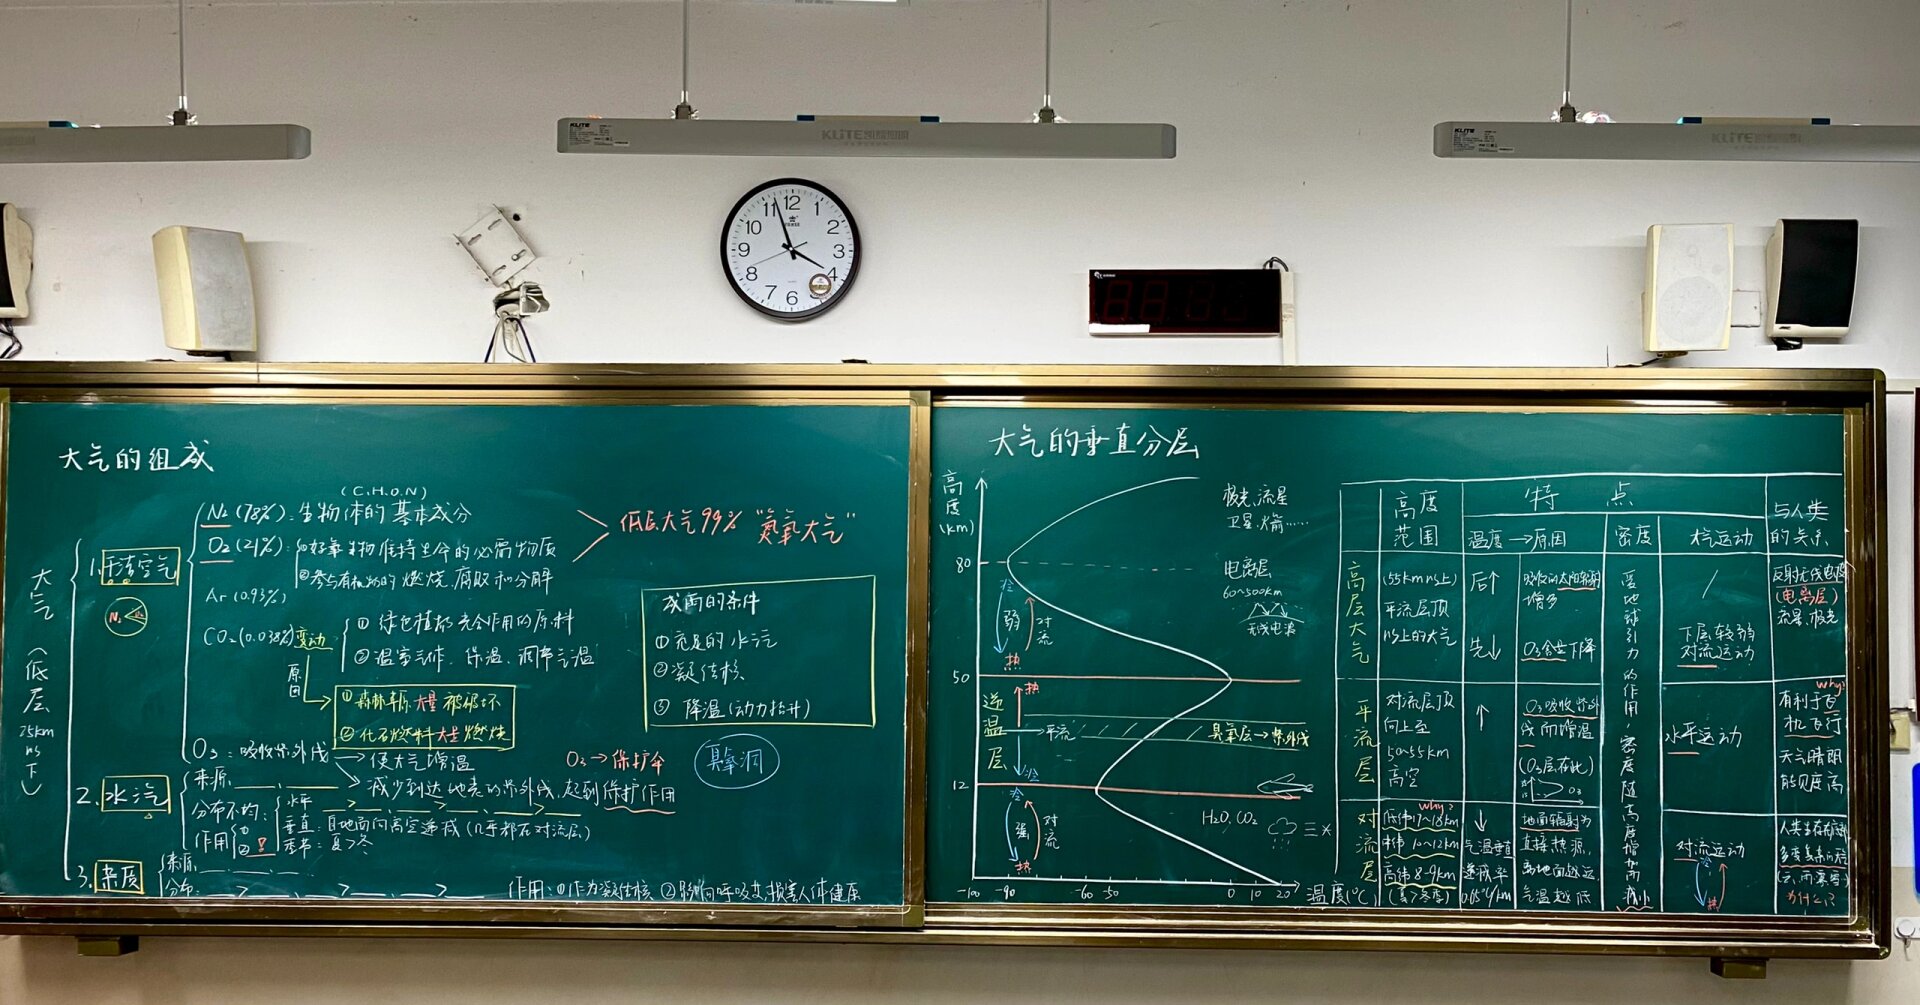 KLITE
KLITE
KLITE
KLITE
11 12 1
10 2
9 3
8 4
7 6
大气的组成
大气(低层25km以下)
1. 干洁空气
N₂
(C.H.O.N)
N₂(78%):生物体的基本成分
O₂(21%):①好氧生物维持生命的必需物质
②参与有机物的燃烧、腐败和分解
低层大气99% "氮氧大气"
Ar(0.93%)
CO₂(0.038%)变动
①绿色植物光合作用的原料
②温室气体、保温、调节气温
原因
①森林草原大量被破坏
②化石燃料大量燃烧
O₃:吸收紫外线→使大气增温
减少到达地表的紫外线,起到保护作用
O₃→保护伞
臭氧洞
成雨的条件
①充足的水汽
②凝结核
③降温(动力抬升)
2. 水汽
来源:
分布不均:
水平
垂直:自地面向高空递减(几乎都在对流层)
季节:夏>冬
作用
①
②
3. 杂质
来源:
分布:
作用:①作为凝结核 ②影响呼吸及损害人体健康
大气的垂直分层
高度(km)
极光、流星
卫星、火箭……
80
电离层
60~500km
无线电波
冷
弱
对流
热
50
热
逆温层
平流
冷
臭氧层→紫外线
12
冷
强
对流
热
H₂O, CO₂
-100 -90 -60 -50 0 10 20 温度(℃)
高度范围
特点
与人类的关系
温度→原因
密度
大气运动
高层大气
(55km以上)
平流层顶
以上的大气
后↑
先↓
吸收的太阳辐射
增多
O₃含量下降
受地球引力的作用,密度随高度增高减小
/
下层较弱
对流运动
反射无线电波
(电离层)
流星、极光
平流层
对流层顶
向上至
50~55km
高空
↑
O₃吸收紫外
线而增温
(O₃层在此)
O₃
水平运动
why?
有利于飞
机飞行
天气晴朗
能见度高
对流层
why?
低纬17~18km
中纬10~12km
高纬8~9km
(夏>冬季)
↓
气温垂直
递减率
0.65℃/km
地面辐射为
直接热源,
离地面越远,
气温越低
对流运动
冷
热
人类生存在底部
多变复杂的天气
(云、雨、雾、雪)
为什么?